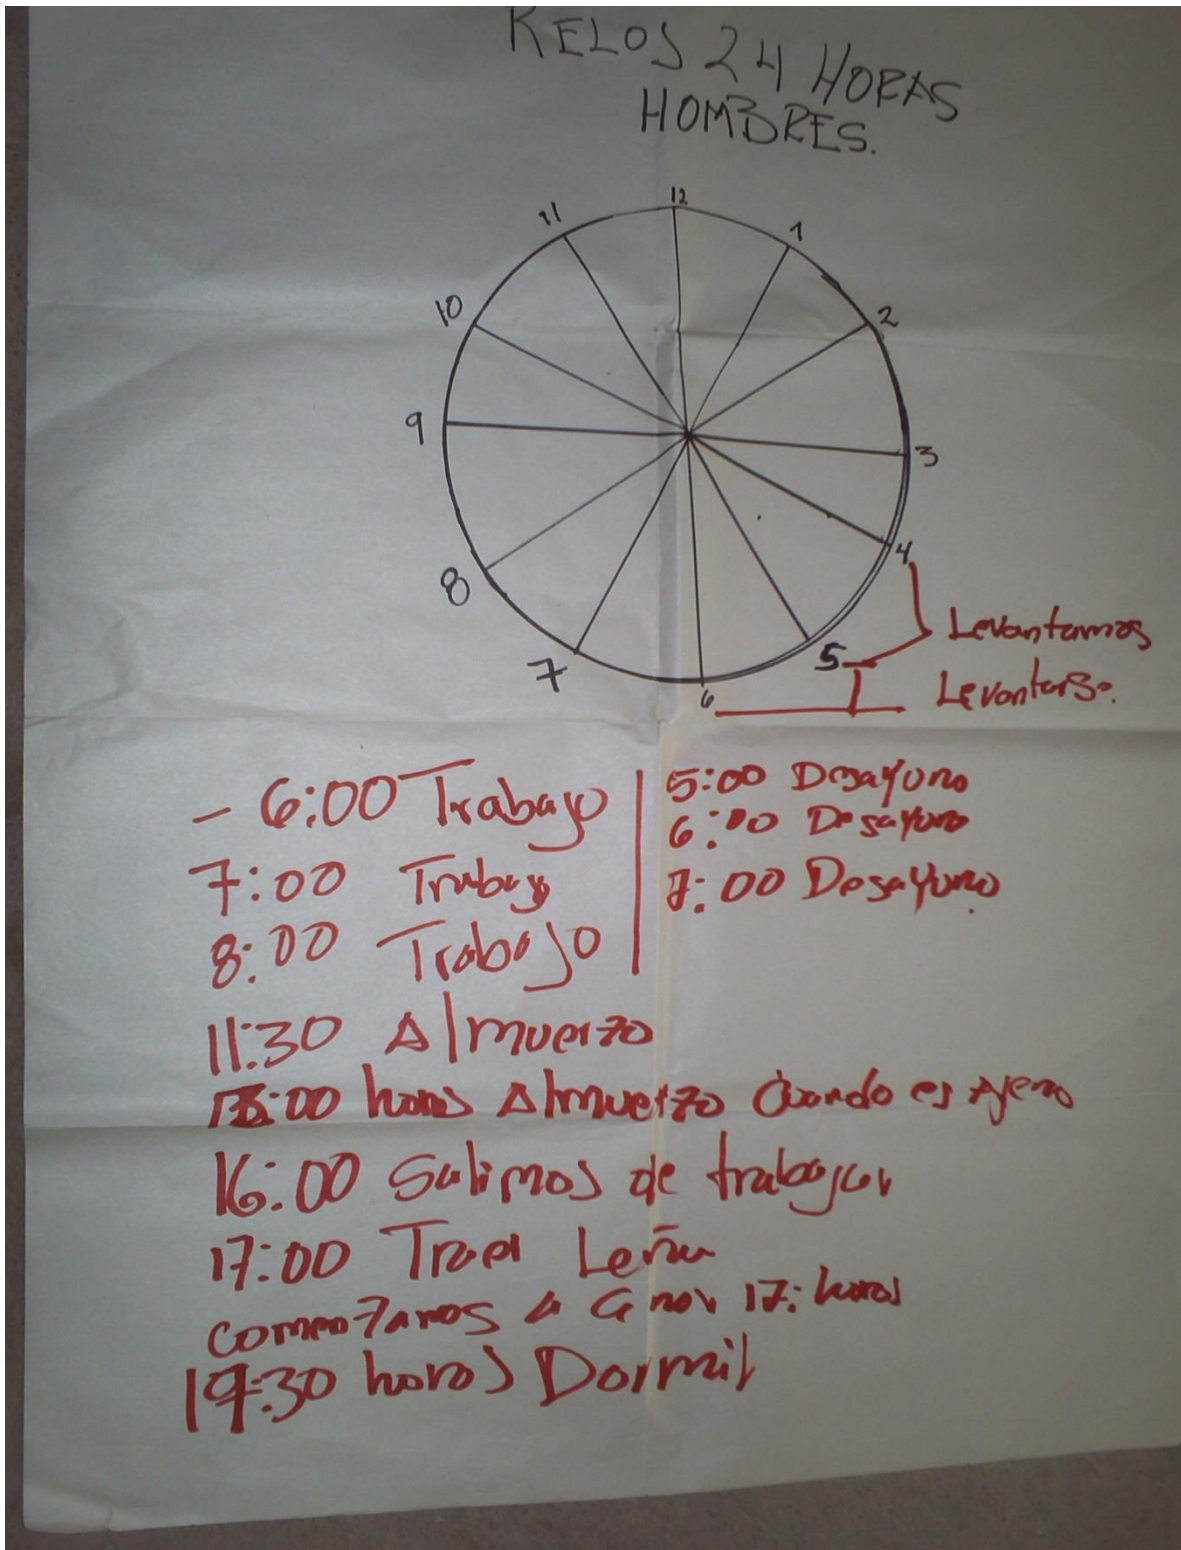 RELOJ 24 HORAS
HOMBRES.
12
11
1
10
2
9
3
4
8
5
7
6
Levantamos
Levantarse.
- 6:00 Trabajo
7:00 Trabajo
8:00 Trabajo
5:00 Desayuno
6:00 Desayuno
7:00 Desayuno
11:30 Almuerzo
:00 horas Almuerzo Cuando es ajeno
16:00 Salimos de trabajar
17:00 Traer Leña
a 17: horas
19:30 horas Dormir